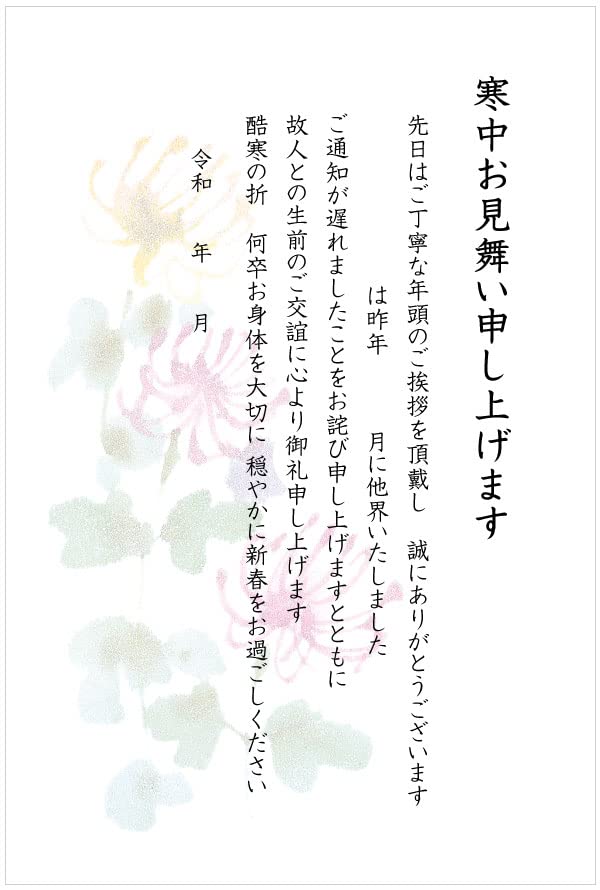 寒中お見舞い申し上げます
先日はご丁寧な年頭のご挨拶を頂戴し　誠にありがとうございます
は昨年　月に他界いたしました
ご通知が遅れましたことをお詫び申し上げますとともに
故人との生前のご交誼に心より御礼申し上げます
酷寒の折　何卒お身体を大切に　穏やかに新春をお過ごしください
令和　年　月